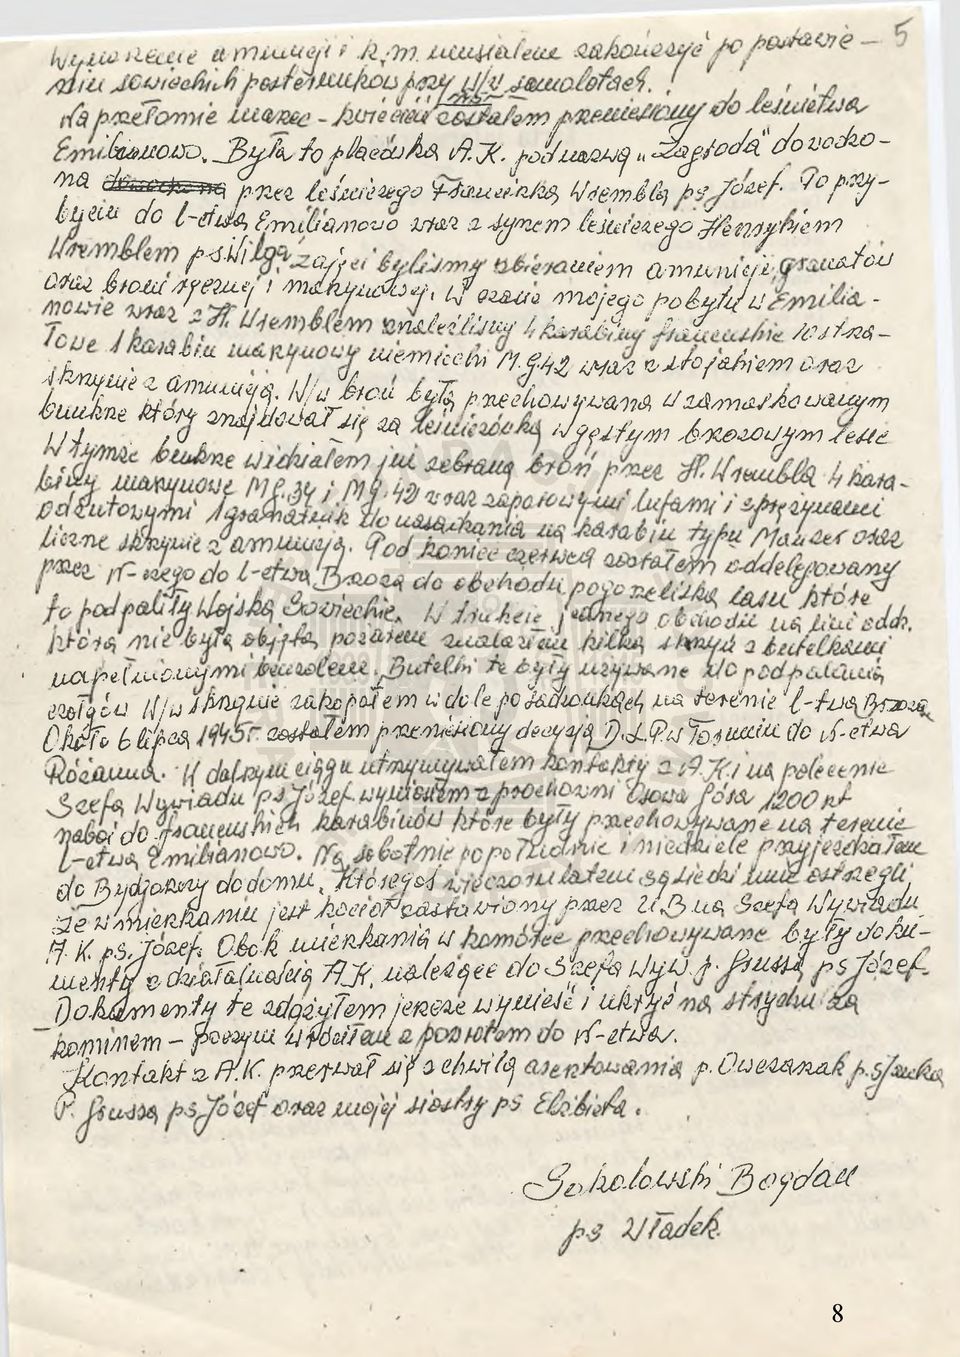 5
Wynoszenie amunicji i k.m. musiałem zakończyć po postawie-
niu sowieckich posterunków przy w/w samolotach.
Na przełomie marzec - kwiecień zostałem przeniesiony do leśnictwa
Emilianowo. Była to placówka A.K. pod nazwą „Zagroda" dowodzo-
na przez leśniczego Franciszka Wrembla ps. Józef. Po przy-
byciu do l-ctwa Emilianowo wraz z synem leśniczego Henrykiem
Wremblem ps Wilga zajęci byliśmy zbieraniem amunicji, granatów
oraz broni ręcznej i maszynowej. W czasie mojego pobytu w Emilia-
nowie wraz z H. Wremblem znaleźliśmy 4 karabiny francuskie 10 strza-
łowe 1 karabin maszynowy niemiecki M.g.42 wraz z stojakiem oraz
skrzynie z amunicją. W/w broń była przechowywana w zamaskowanym
bunkrze który znajdował się za leśniczówką w gęstym brzozowym lesie
W tymże bunkrze widziałem już zebraną broń przez H. Wrembla 4 kara-
biny maszynowe Mg.34 i Mg.42 wraz zapasowymi lufami i sprężynami
odrzutowymi 1 granatnik do nasadzania na karabin typu Mauzer oraz
liczne skrzynie z amunicją. Pod koniec czerwca zostałem oddelegowany
przez N-czego do l-ctwa Brzoza do obchodu pogorzeliska lasu które
to podpaliły Wojska Sowieckie. W trakcie jednego obchodu na linii oddz.
która nie była objęta pożarem znalazłem kilka skrzyń z butelkami
napełnionymi benzolem. Butelki te były używane do podpalania
czołgów W/w skrzynie zakopałem w dole po sadzonkach na terenie l-ctwa Brzoza
Około 6 lipca 1945r. zostałem przeniesiony decyzją D.L.P. w Toruniu do N-ctwa
Różanna. W dalszym ciągu utrzymywałem kontakty z A.K. i na polecenie
Szefa Wywiadu ps Józef wyniosłem z prochowni Osowa Góra 1200 szt
naboi do francuskich karabinów które były przechowywane na terenie
l-ctwa Emilianowo. Na sobotnie popołudnie i niedziele przyjeżdżałem
do Bydgoszczy do domu. Któregoś wieczoru latem sąsiedzi mnie ostrzegli
że w mieszkaniu jest kocioł zastawiony przez U.B na Szefa Wywiadu
A.K. ps. Józef. Obok mieszkania w komórce przechowywane były doku-
menty z działalności A.K. należące do Szefa Wyw. p. Grussa ps Józef.
Dokumenty te zdążyłem jeszcze wynieść i ukryć na strychu za
kominem – poczym wróciłem z powrotem do N-ctwa.
Kontakt z A.K. przerwał się z chwilą aresztowania p. Owczarzak p.s
P. Grussa ps Józef oraz mojej siostry ps Elżbieta.
Sokołowski Bogdan
ps Władek.
8